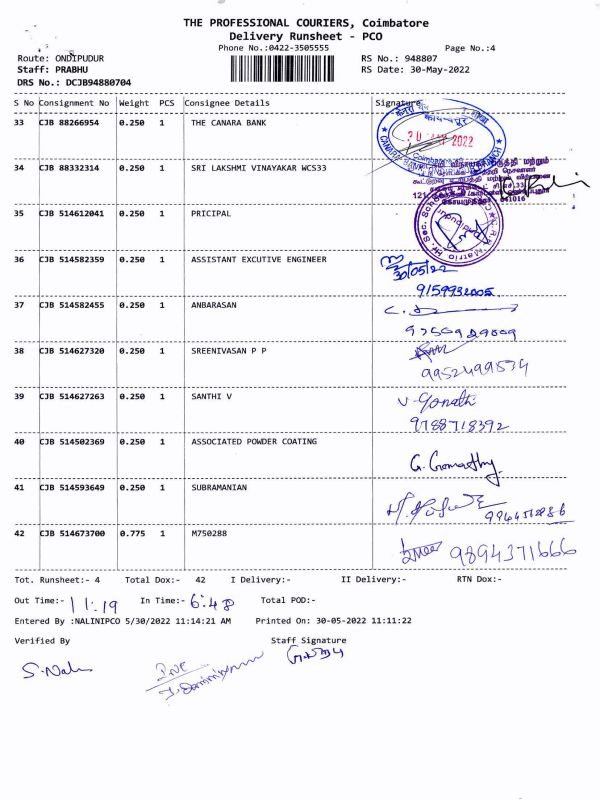 THE PROFESSIONAL COURIERS, Coimbatore
Delivery Runsheet - PCO
Phone No.:0422-3505555 Page No.:4
Route: ONDIPUDUR RS No.: 948807
Staff: PRABHU RS Date: 30-May-2022
DRS No.: DCJB94880704
S No Consignment No Weight PCS Consignee Details Signature
33 CJB 88266954 0.250 1 THE CANARA BANK
2022
34 CJB 88332314 0.250 1 SRI LAKSHMI VINAYAKAR WCS33
35 CJB 514612041 0.250 1 PRICIPAL
36 CJB 514582359 0.250 1 ASSISTANT EXCUTIVE ENGINEER
30/05/22
9159932005
37 CJB 514582455 0.250 1 ANBARASAN
38 CJB 514627320 0.250 1 SREENIVASAN P P
9952499574
39 CJB 514627263 0.250 1 SANTHI V
9788718392
40 CJB 514502369 0.250 1 ASSOCIATED POWDER COATING
G. Gomathy
41 CJB 514593649 0.250 1 SUBRAMANIAN
42 CJB 514673700 0.775 1 M750288
9894371666
Tot. Runsheet:- 4 Total Dox:- 42 I Delivery:- II Delivery:- RTN Dox:-
Out Time:- 11:19 In Time:- 6:48 Total POD:-
Entered By :NALINIPCO 5/30/2022 11:14:21 AM Printed On: 30-05-2022 11:11:22
Verified By Staff Signature